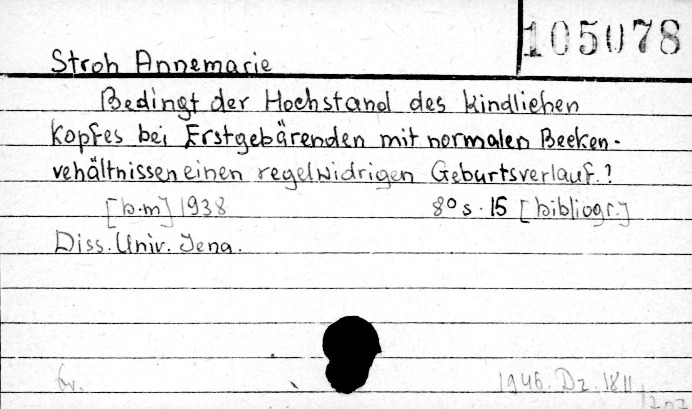 105078
Stroh Annemarie
Bedingt der Hochstand des kindlichen
Kopfes bei Erstgebärenden mit normalen Becken-
vehältnissen einen regelwidrigen Geburtsverlauf.?
[b.m] 1938 8° s. 15 [bibliogr.]
Diss. Univ. Jena.
1946. Dz. 1811